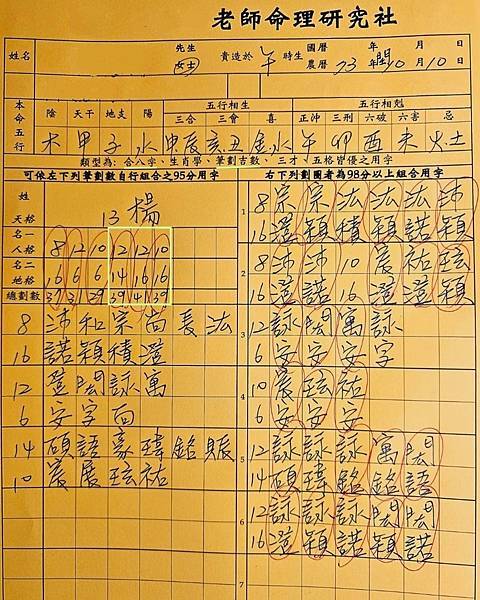 老師命理研究社
姓名 先生 女士 貴造於 午 時生 國曆 年 月 日
農曆 73 年 閏10 月 10 日
本命五行 陰 天干 地支 陽 五行相生 五行相剋
三合 三會 喜 正沖 三刑 六破 六害 忌
木 甲 子 水 申辰 亥丑 金水 午 卯 酉 未 火土
類型為:合八字、生肖學、筆劃吉數、三才、五格皆優之用字
可依左下列筆劃數自行組合之95分用字
姓
天格 13 楊
名一
人格 8 12 10 12 12 10
名二
地格 16 6 6 14 16 16
總劃數 37 31 29 39 41 39
8 沛和宗尚長法
16 諾穎積澄
12 登閎詠寓
6 安字而
14 碩語豪瑋銘賑
10 宸展玹祐
右下列劃圈者為98分以上組合用字
1
8 宗宗法法法沛
16 澄穎積穎諾穎
2
8 沛沛 10 宸祐玹
16 澄諾 16 澄澄穎
3
12 詠閎寓詠
6 安安安字
4
10 宸玹祐
6 安安安
5
12 詠詠詠寓閎
14 碩瑋銘銘語
6
12 詠詠詠閎閎
16 澄穎諾穎諾
7